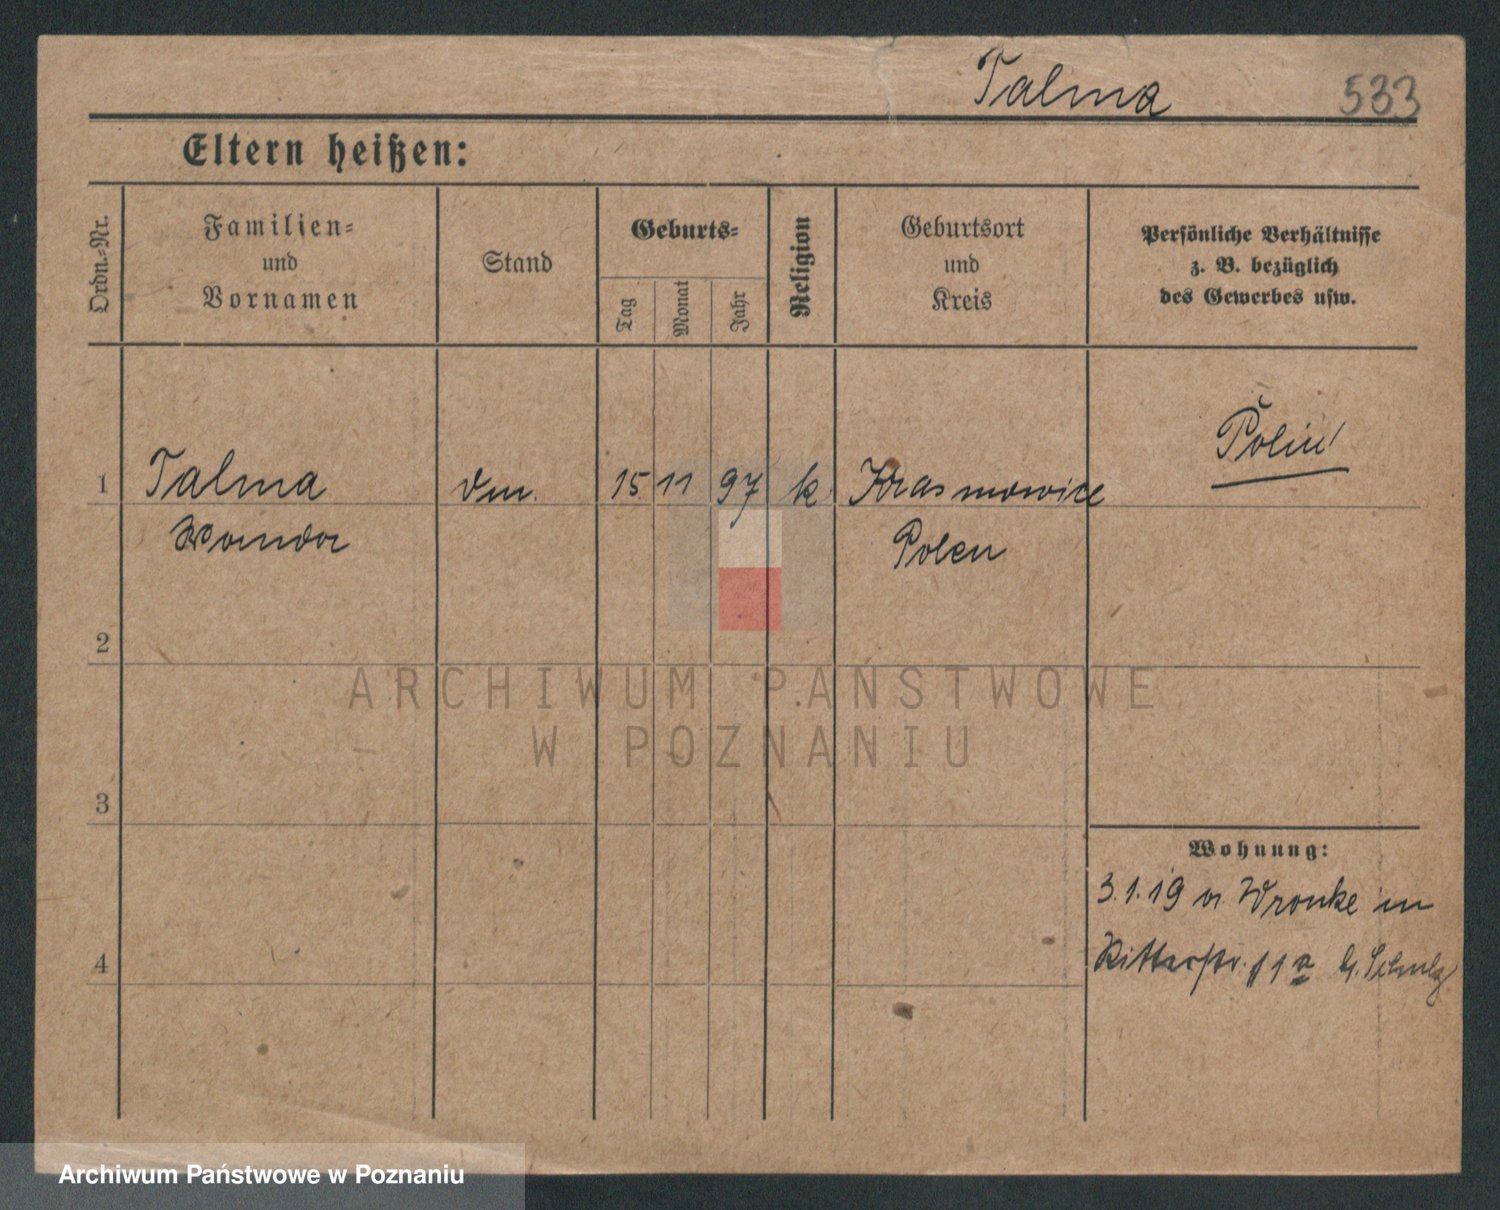 Talma 533
Eltern heißen:
Ordn.-Nr.
Familien-
und
Vornamen
Stand
Geburts-
Tag
Monat
Jahr
Religion
Geburtsort
und
Kreis
Persönliche Verhältnisse
z. B. bezüglich
des Gewerbes usw.
Polin
1 Talma 15 11 97 k
Wanda Polen
2
ARCHIWUM PAŃSTWOWE
W POZNANIU
3
Wohnung:
3.1.19 v. Wronke in
4 Ritterstr. 11a b. Schulz
Archiwum Państwowe w Poznaniu